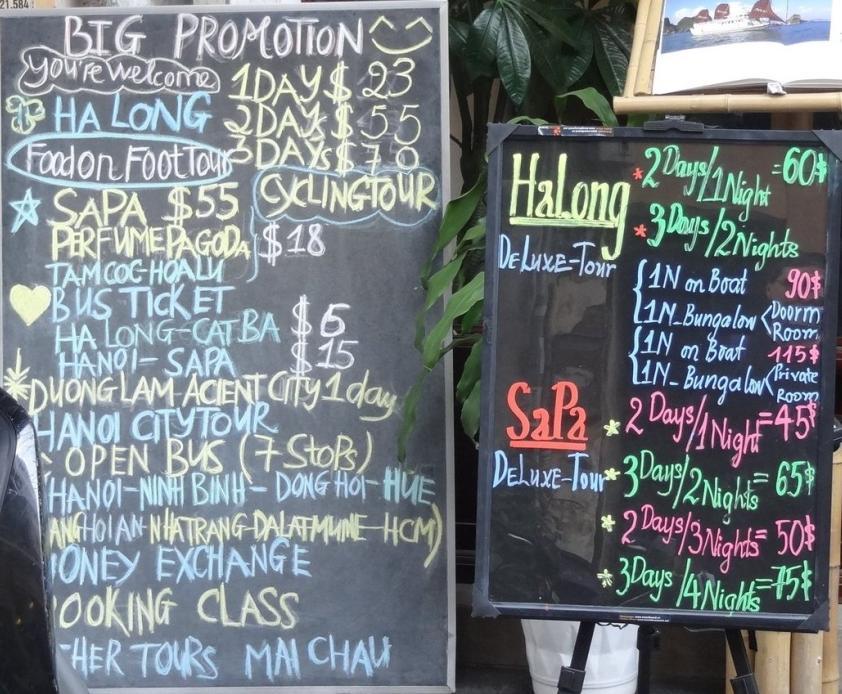 21.584:
BIG PROMOTION
You're welcome
1DAY $ 23
HA LONG 2DAYs $ 55
Food on Foot Tour 3DAYs $ 78
CYCLING TOUR
SAPA $55
PERFUME PAGODA $18
TAMCOC-HOALU
BUS TICKET
HA LONG-CAT BA $6
HANOI-SAPA $15
DUONG LAM ACIENT CITY 1 day
HANOI CITY TOUR
OPEN BUS (7 StoPs)
HANOI-NINH BINH-DONG HOI-HUE
ANG HOI AN-NHATRANG-DALAT-MUINE-HCM)
ONEY EXCHANGE
OOKING CLASS
HER TOURS MAI CHAU
HaLong
2 Days/1Night =60$
3 Days/2Nights
DeLuxe-Tour
1N on Boat 90$
1N_Bungalow <Doorm Room
1N on Boat 115$
1N_Bungalow <Private Room
SaPa
2 Days/1Night =45$
DeLuxe-Tour
3Days/2Nights = 65$
2 Days/3Nights = 50$
3Days/4Nights =75$